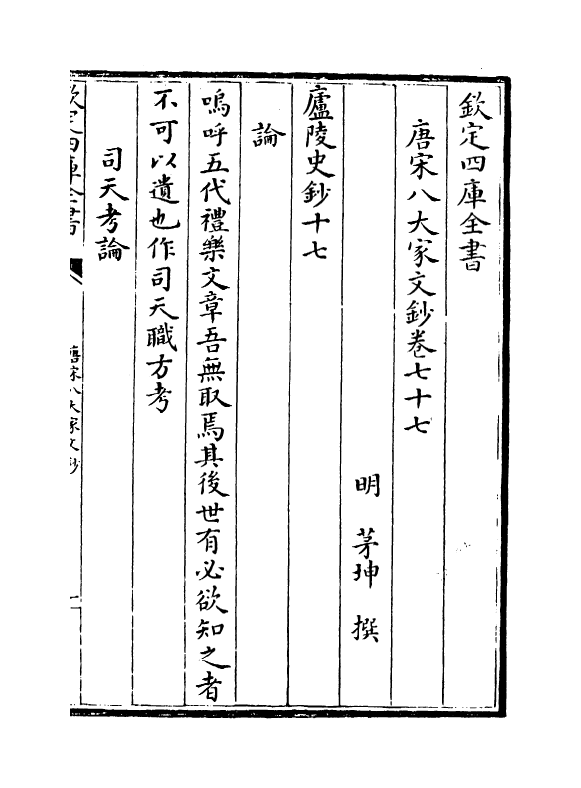 欽定四庫全書
唐宋八大家文鈔卷七十七
明 茅坤 撰
廬陵史鈔十七
論
嗚呼五代禮樂文章吾無取焉其後世有必欲知之者
不可以遺也作司天職方考
司天考論
欽定四庫全書
唐宋八大家文鈔
一